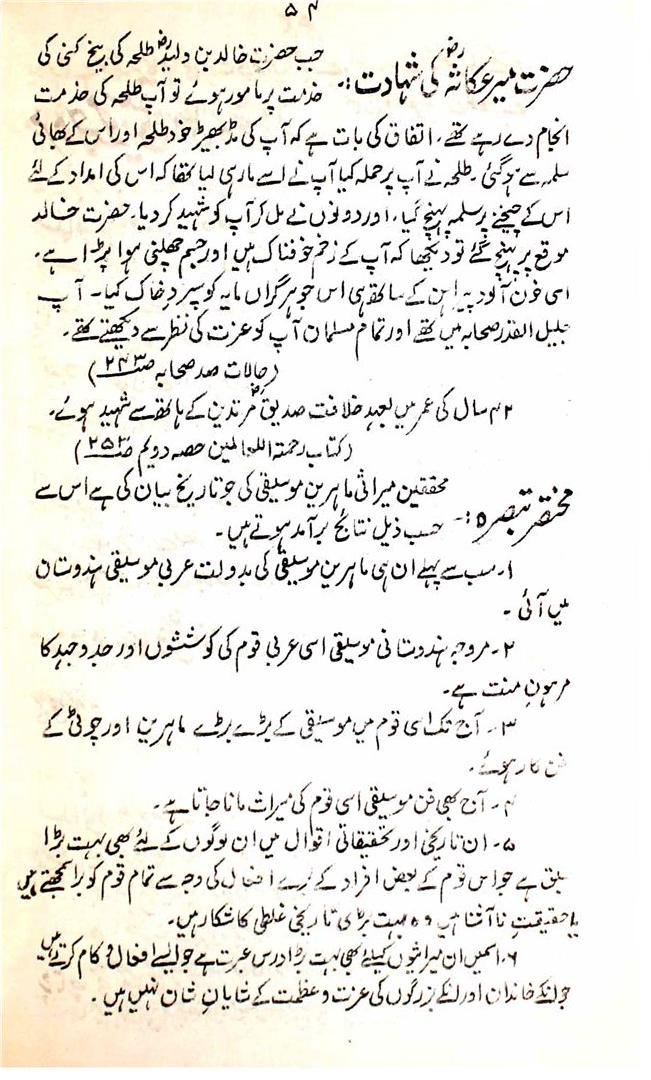 ۵۴
حضرت میر عکاشہ رضؓ کی شہادت :-
جب حضرت خالد بن ولیدرضؓ طلحہ کی بیخ کنی کی
خدمت پر مامور ہوئے تو آپ طلحہ کی خدمت
انجام دے رہے تھے۔ اتفاق کی بات ہے کہ آپ کی مڈبھیڑ خود طلحہ اور اس کے بھائی
سلمہ سے ہو گئی۔ طلحہ نے آپ پر حملہ کیا آپ نے اسے مار ہی لیا تھا کہ اس کی امداد کے لئے
اس کے چیخنے پر سلمہ پہنچ گیا، اور دونوں نے مل کر آپ کو شہید کر دیا۔ حضرت خالد
موقع پر پہنچ گئے تو دیکھا کہ آپ کے زخم خوفناک ہیں اور جسم چھلنی ہوا پڑا ہے۔
اسی خون آلود پیراہن کے ساتھ ہی اس جوہر گراں مایہ کو سپردِ خاک کیا۔ آپ
جلیل القدر صحابہ میں تھے اور تمام مسلمان آپ کو عزت کی نظر سے دیکھتے تھے۔
(حالات صد صحابہ صـ ۲۴۳)
۴۲ سال کی عمر میں بعہد خلافت صدیقرضؓ مرتدین کے ہاتھ سے شہید ہوئے۔
(کتاب رحمتہ اللعالمین حصہ دوئم صـ ۲۵۲)
مختصر تبصرہ :-
محققین میراثی ماہرین موسیقی کی جو تاریخ بیان کی ہے اس سے
حسب ذیل نتائج برآمد ہوتے ہیں۔
۱۔ سب سے پہلے ان ہی ماہرین موسیقی کی بدولت عربی موسیقی ہندوستان
میں آئی۔
۲۔ مروجہ ہندوستانی موسیقی اسی عربی قوم کی کوششوں اور جدوجہد کا
مرہونِ منت ہے۔
۳۔ آج تک اسی قوم میں موسیقی کے بڑے بڑے ماہرین اور چوٹی کے
فن کار ہوئے۔
۴۔ آج بھی فن موسیقی اسی قوم کی میراث مانا جاتا ہے۔
۵۔ ان تاریخی اور تحقیقاتی اقوال میں ان لوگوں کے لئے بھی بہت بڑا
سبق ہے جو اس قوم کے بعض افراد کے بُرے افعال کی وجہ سے تمام قوم کو بُرا سمجھتے ہیں
یا حقیقت نا آشنا ہیں وہ بہت بڑی تاریخی غلطی کا شکار ہیں۔
۶۔ اسمیں ان میراثیوں کیلئے بھی بہت بڑا درس عبرت ہے جو ایسے افعال و کام کرتے ہیں
جو انکے خاندان اور انکے بزرگوں کی عزت و عظمت کے شایانِ شان نہیں ہیں۔